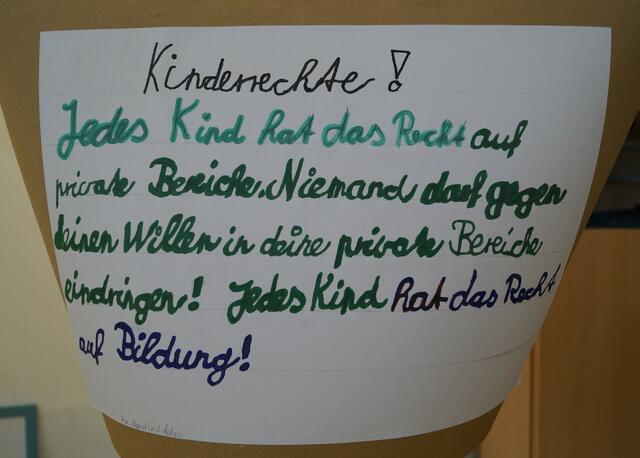 Kinderrechte!
Jedes Kind hat das Recht auf
private Bereiche. Niemand darf gegen
deinen Willen in deine private Bereiche
eindringen! Jedes Kind hat das Recht
auf Bildung!
und